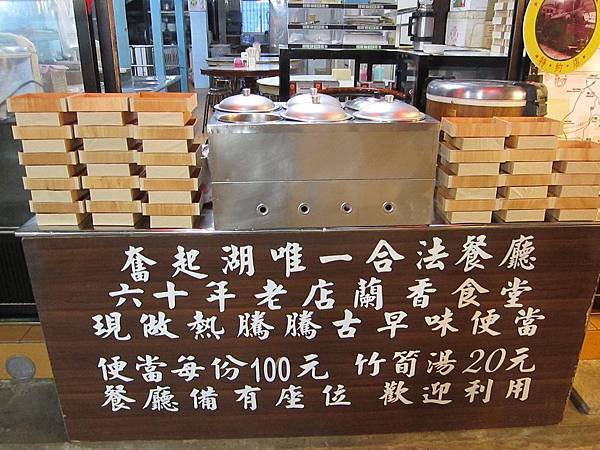 奮起湖唯一合法餐廳
六十年老店蘭香食堂
現做熱騰騰古早味便當
便當每份100元 竹筍湯20元
餐廳備有座位 歡迎利用